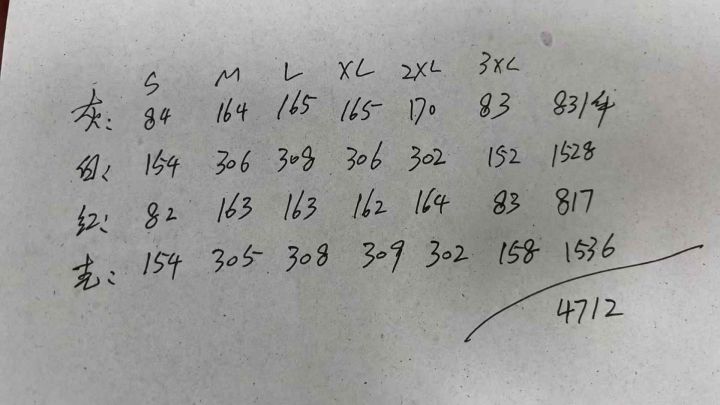 S M L XL 2XL 3XL
灰: 84 164 165 165 170 83 831件
154 306 308 306 302 152 1528
红: 82 163 163 162 164 83 817
154 305 308 309 302 158 1536
4712